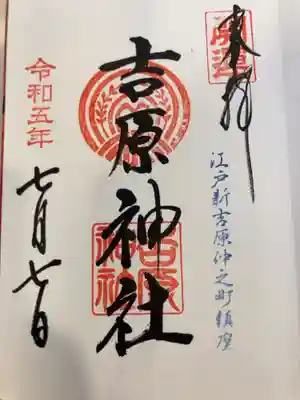 開運
奉拝
江戸新吉原仲之町鎮座
吉原神社
吉原神社
令和五年
七月七日